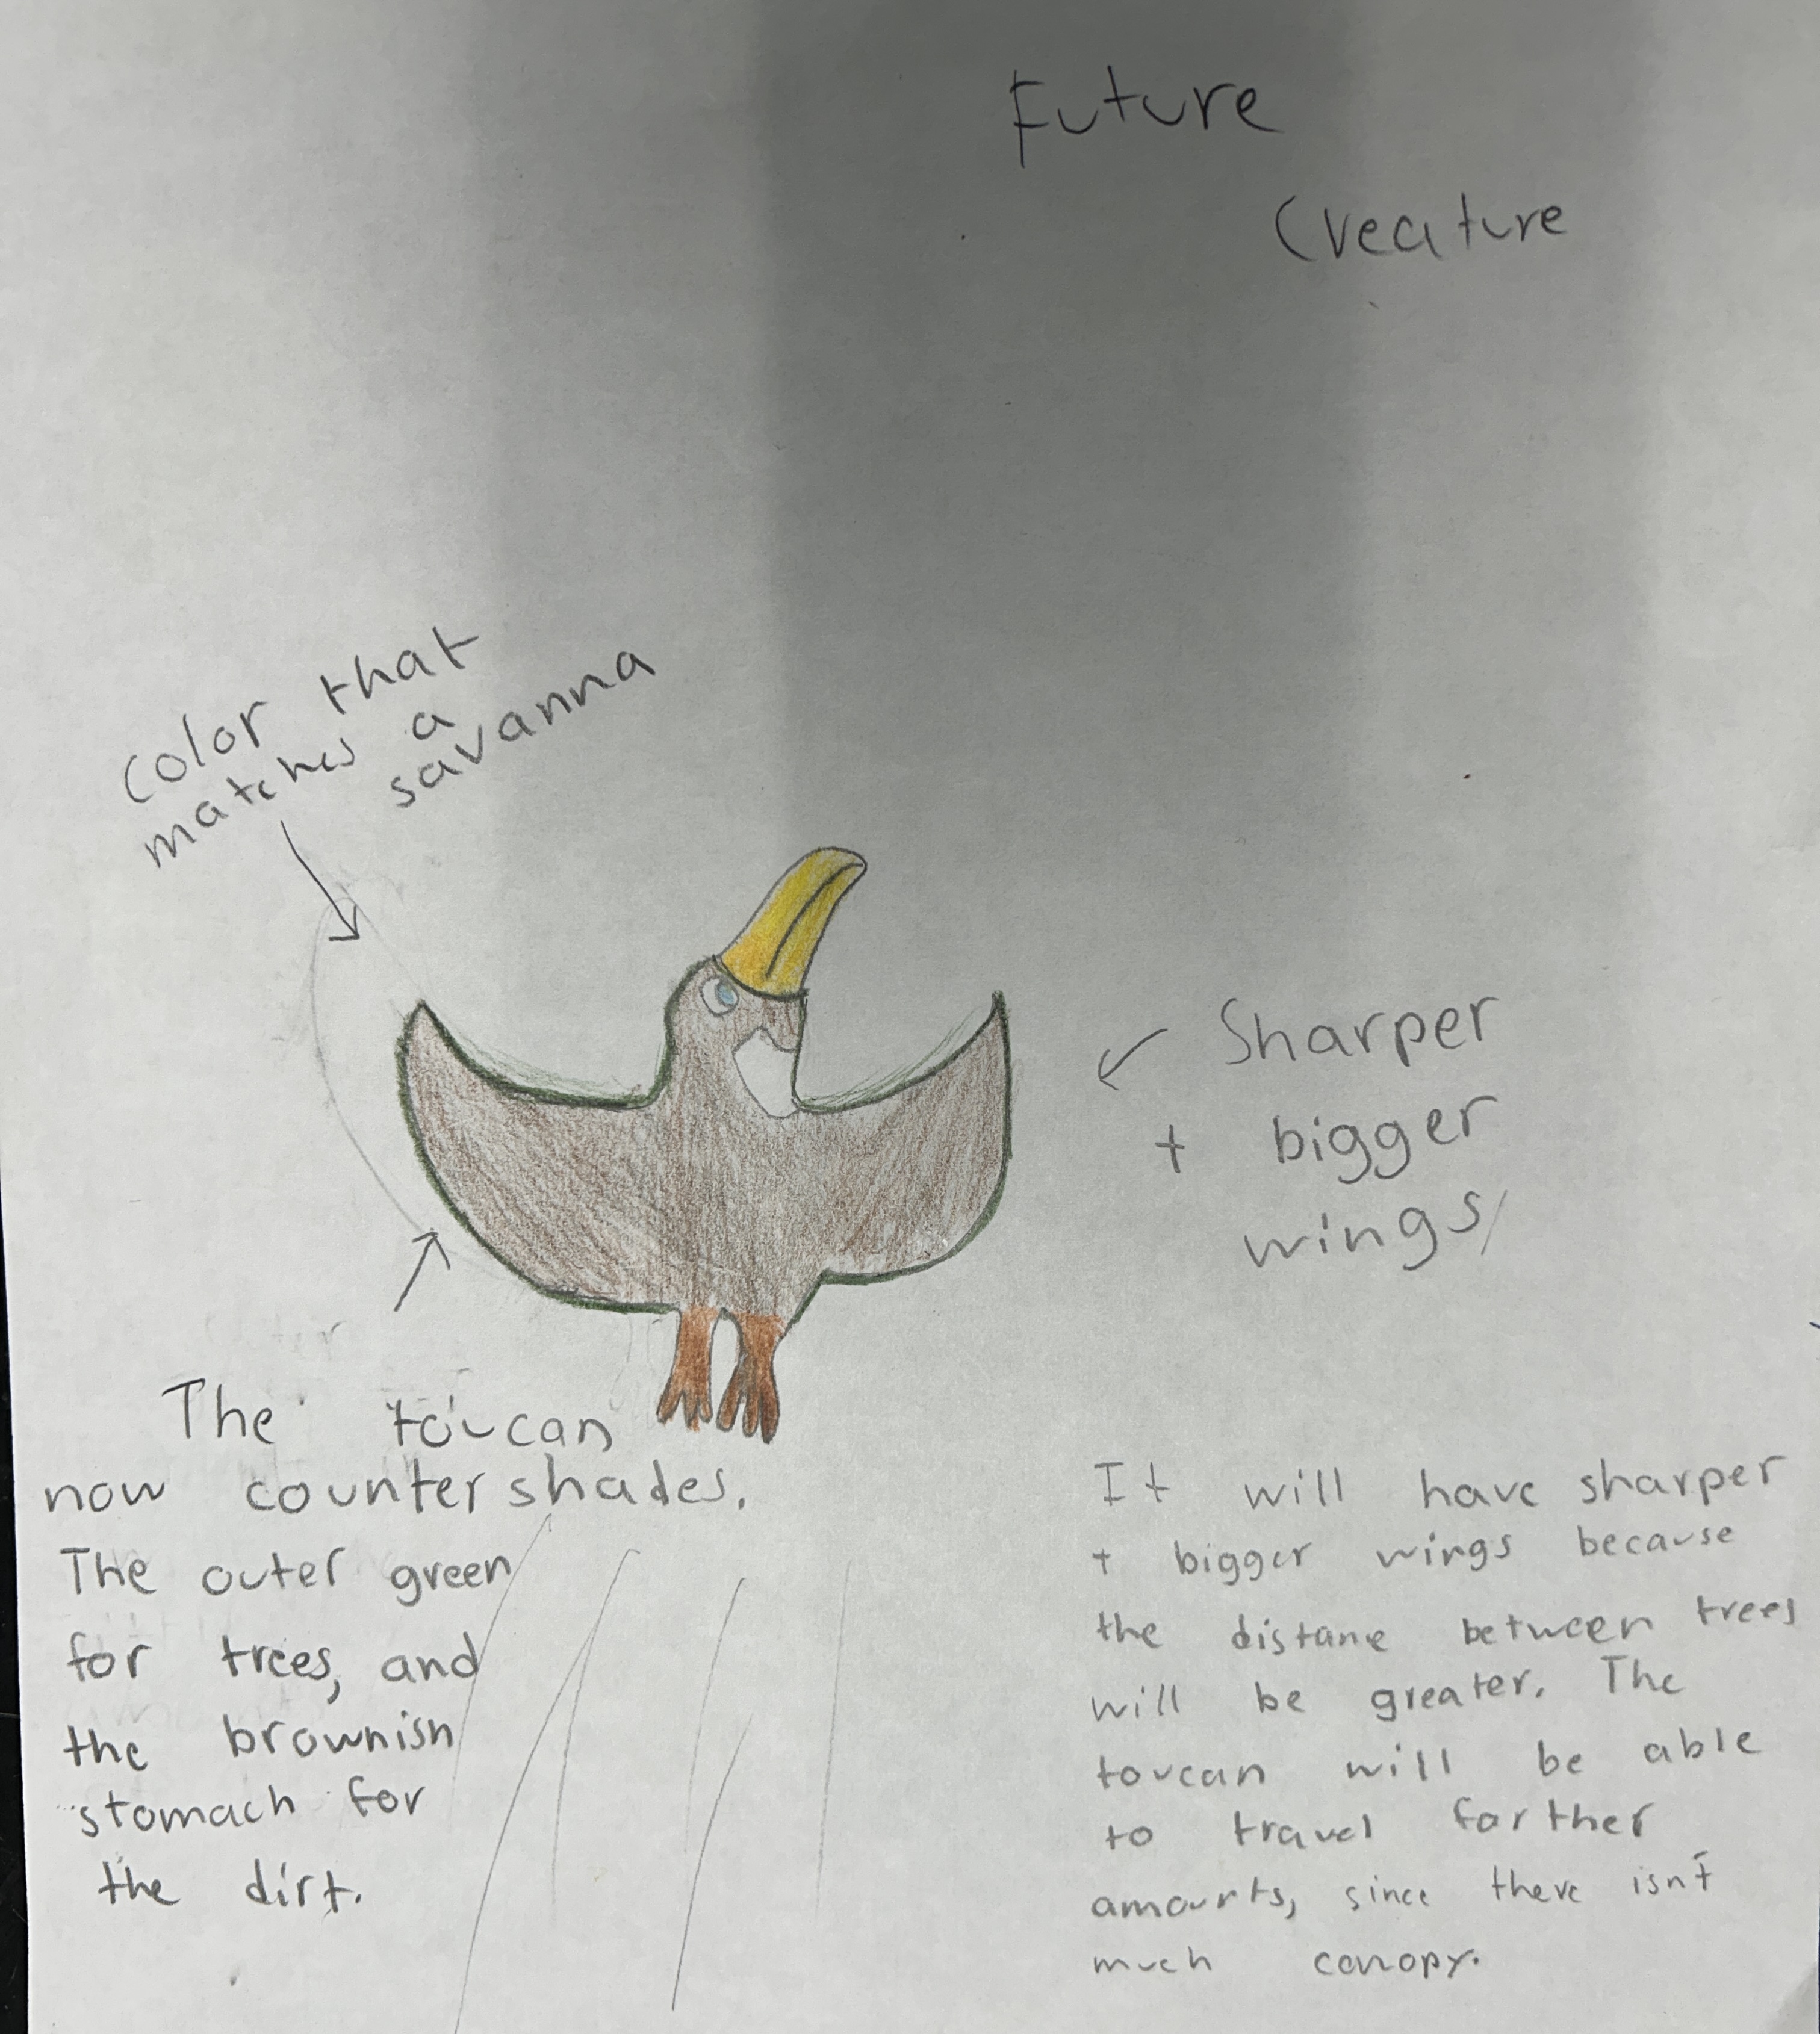 Future
Creature
color that
matches a
savanna
Sharper
+ bigger
wings
The toucan
now countershades.
The outer green
for trees, and
the brownish
stomach for
the dirt.
It will have sharper
+ bigger wings because
the distane between trees
will be greater. The
toucan will be able
to travel farther
amounts, since there isn't
much canopy.